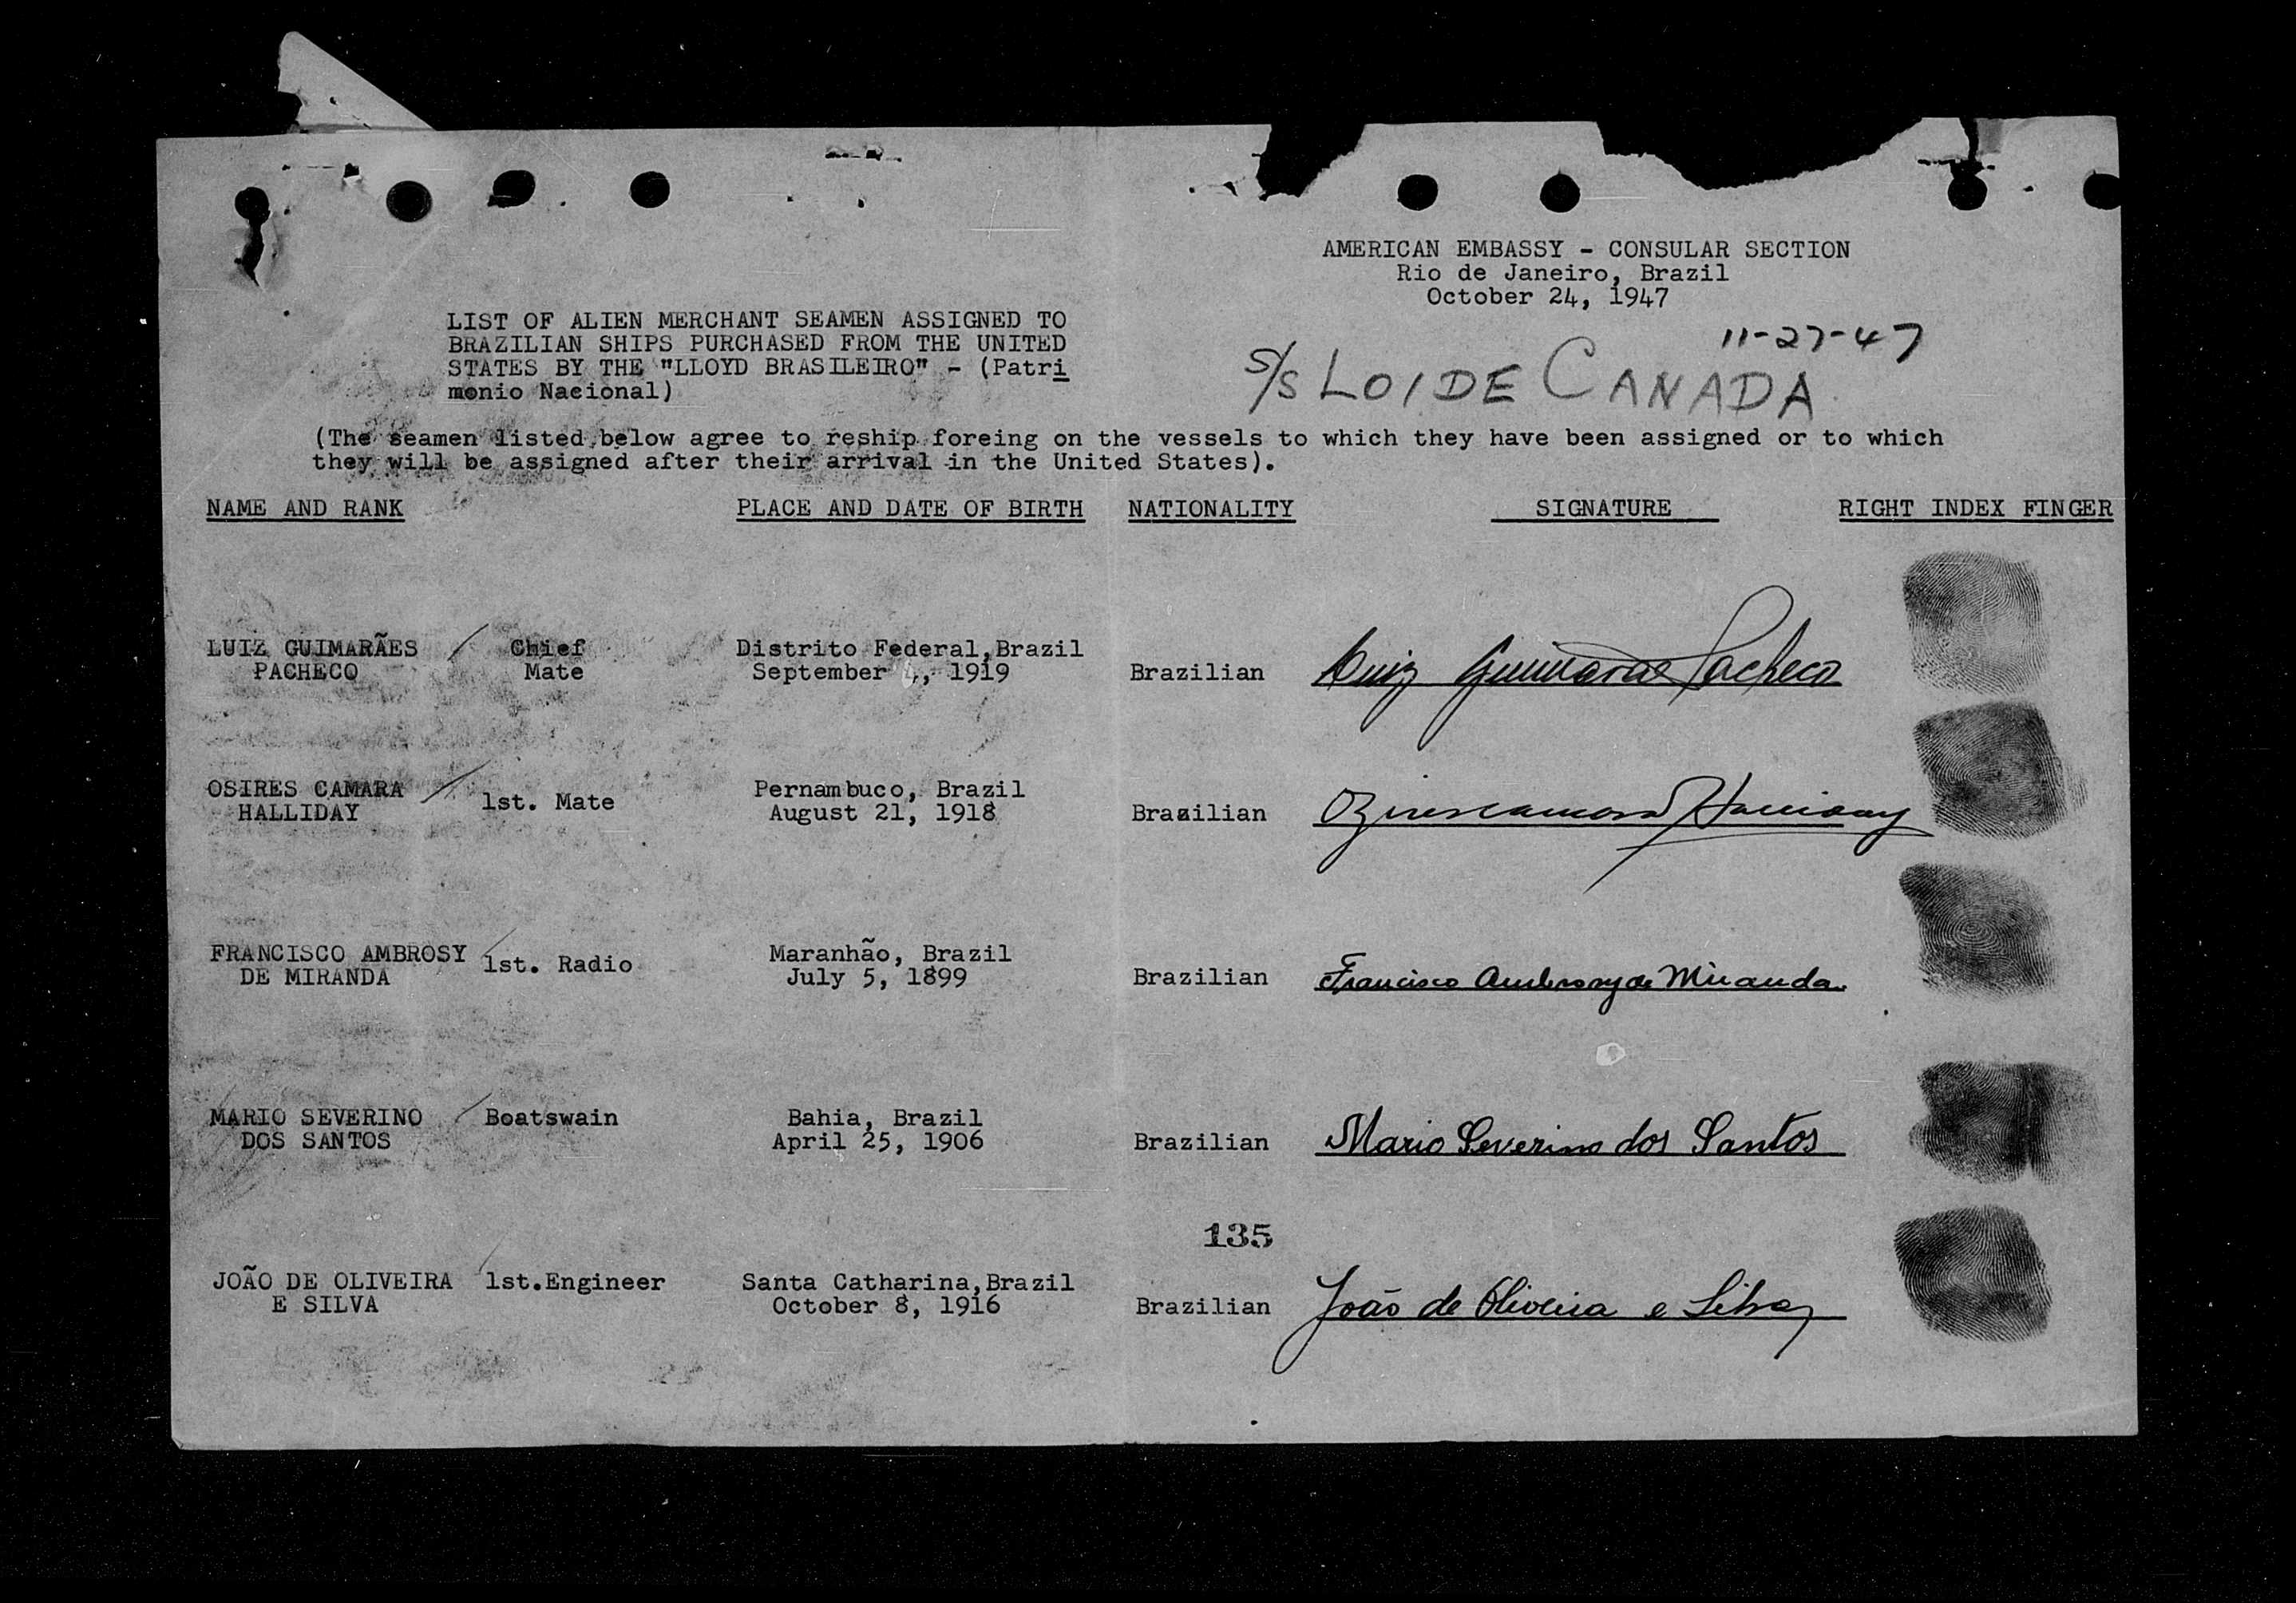 AMERICAN EMBASSY - CONSULAR SECTION
Rio de Janeiro, Brazil
October 24, 1947
LIST OF ALIEN MERCHANT SEAMEN ASSIGNED TO
BRAZILIAN SHIPS PURCHASED FROM THE UNITED
STATES BY THE "LLOYD BRASILEIRO" - (Patri
monio Nacional)
11-27-47
S/S LOIDE CANADA
(The seamen listed below agree to reship foreing on the vessels to which they have been assigned or to which
they will be assigned after their arrival in the United States).
NAME AND RANK PLACE AND DATE OF BIRTH NATIONALITY SIGNATURE RIGHT INDEX FINGER
LUIZ GUIMARÃES / Chief Distrito Federal, Brazil
PACHECO Mate September 4, 1919 Brazilian Luiz Guimarães Pacheco
OSIRES CAMARA / 1st. Mate Pernambuco, Brazil
HALLIDAY August 21, 1918 Brazilian Ozires Camara Halliday
FRANCISCO AMBROSY / 1st. Radio Maranhão, Brazil
DE MIRANDA July 5, 1899 Brazilian Francisco Ambrosy de Miranda
MARIO SEVERINO / Boatswain Bahia, Brazil
DOS SANTOS April 25, 1906 Brazilian Mario Severino dos Santos
135
JOÃO DE OLIVEIRA / 1st.Engineer Santa Catharina, Brazil
E SILVA October 8, 1916 Brazilian João de Oliveira e Silva